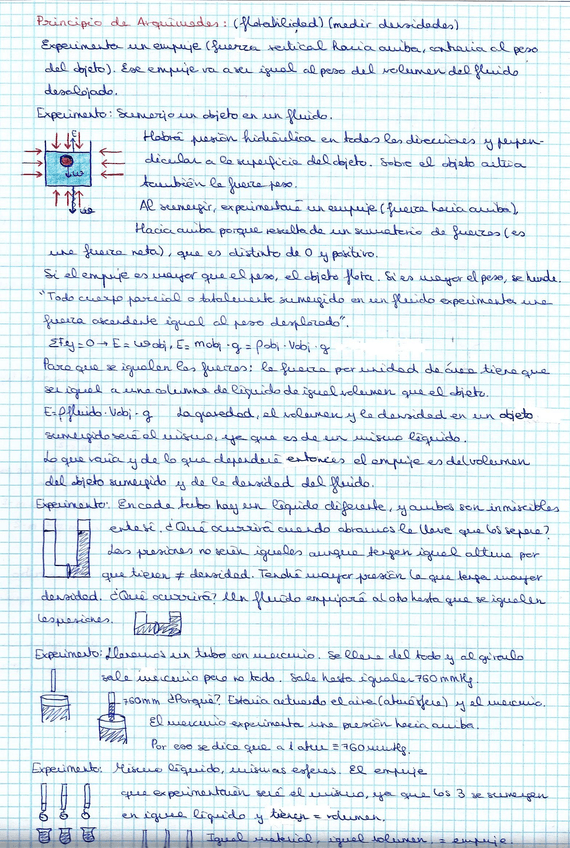 Principio de Arquímedes: (flotabilidad) (medir densidades)
Experimenta un empuje (fuerza vertical hacia arriba, contraria al peso
del objeto). Ese empuje va a ser igual al peso del volumen del fluido
desalojado.
Experimento: Sumerjo un objeto en un fluido.
Habrá presión hidráulica en todas las direcciones y perpen-
dicular a la superficie del objeto. Sobre el objeto actúa
también la fuerza peso.
Al sumergir, experimentará un empuje (fuerza hacia arriba).
Hacia arriba porque resulta de un sumatorio de fuerzas (es
una fuerza neta), que es distinto de 0 y positivo.
Si el empuje es mayor que el peso, el objeto flota. Si es mayor el peso, se hunde.
"Todo cuerpo parcial o totalmente sumergido en un fluido experimenta una
fuerza ascendente igual al peso desplazado".
ΣFy=0 → E = wobj, E= mobj · g = ρobj · Vobj · g
Para que se igualen las fuerzas: la fuerza por unidad de área tiene que
ser igual a una columna de líquido de igual volumen que el objeto.
E=ρfluido · Vobj · g La gravedad, el volumen y la densidad en un objeto
sumergido será el mismo, ya que es de un mismo líquido.
Lo que varía y de lo que dependerá entonces el empuje es del volumen
del objeto sumergido y de la densidad del fluido.
Experimento: En cada tubo hay un líquido diferente, y ambos son inmiscibles
entre sí. ¿Qué ocurrirá cuando abramos la llave que los separa?
Las presiones no serán iguales aunque tengan igual altura por
que tienen ≠ densidad. Tendrá mayor presión la que tenga mayor
densidad. ¿Qué ocurrirá? Un fluido empujará al otro hasta que se igualen
las presiones.
Experimento: Llenamos un tubo con mercurio. Se llena del todo y al girarlo
sale mercurio pero no todo. Sale hasta igualar 760 mmHg.
760mm ¿Porqué? Estaría actuando el aire (atmósfera) y el mercurio.
El mercurio experimenta una presión hacia arriba.
Por eso se dice que a 1 atm = 760 mmHg.
Experimento: Mismo líquido, mismas esferas. El empuje
que experimentarán será el mismo, ya que los 3 se sumergen
en igual líquido y tienen = volumen.
Igual material, igual volumen, = empuje.